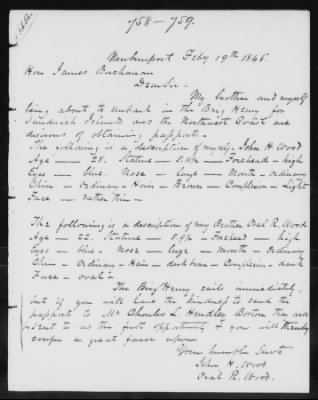 758 – 759.
Newburyport Feby 19th 1846.
Hon James Buchanan
Dear Sir.
My brother and myself
being about to embark in the Brig Henry for
Sandwich Islands and the Northwest Coast are
desirous of obtaining passports –
The following is a description of myself – John H. Wood
Age — 28. Stature – 5. 11/2 – Forehead – high
Eyes – blue. Nose – large – Mouth – ordinary
Chin – ordinary – Hair – Brown – Complexion – Light
Face – rather thin –
The following is a description of my Brother Oval R. Wood
Age — 22. Stature – 5. 9/2 – Forehead – high
eyes – blue – nose – large – mouth – Ordinary
Chin – Ordinary – Hair – dark brown – Complexion – dark
Face – oval –
The Brig Henry sails immediately,
but if you will have the kindness to send the
passports to Mr Charles L. Hundley Boston they will
be sent to us the first opportunity & you will thereby
confer a great favor upon
Your humble Servts
John H. Wood
Oval R. Wood.